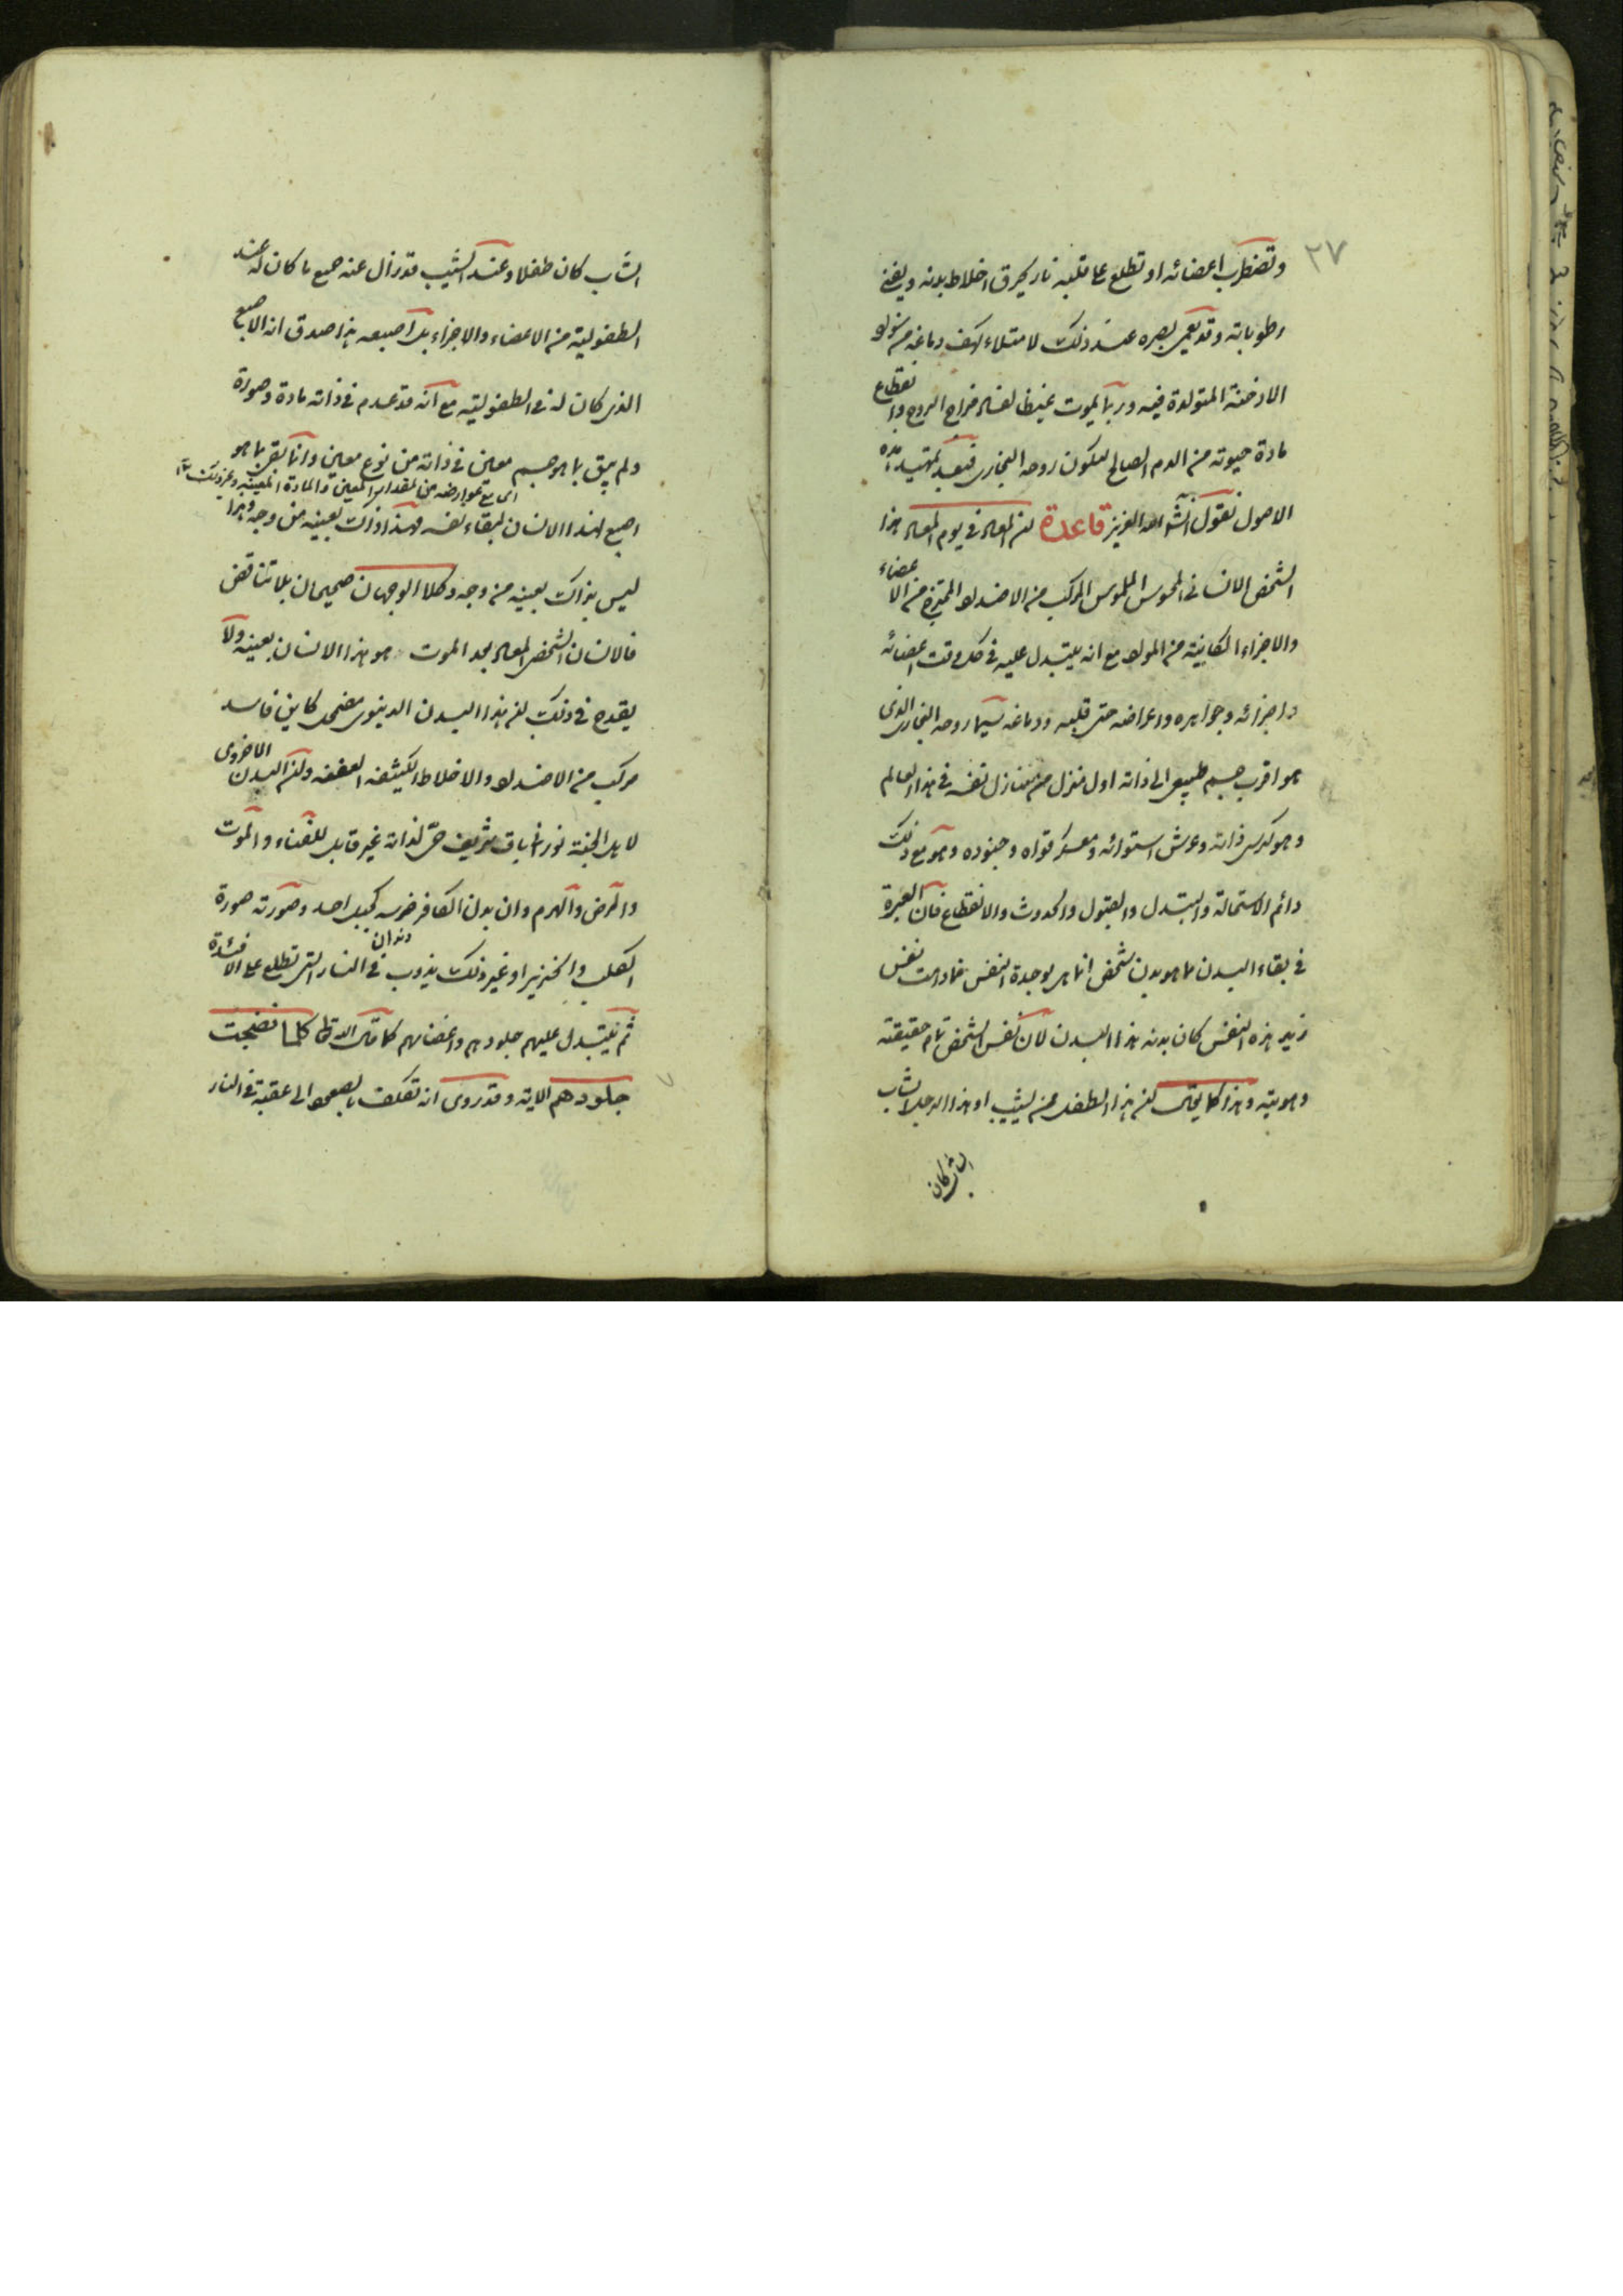 ٢٧
وتضطرب اعضائه او تطلع على قلبه نار يحرق اخلاط بدنه ويفنى
رطوباته وقد يعمى بصره عند ذلك لامتلاء كهف دماغه من سواد
الادخنة المتولدة فيه وربما يموت غيظا لفساد مزاج الروح وانقطاع
مادة حيوته من الدم الصالح لتكون روحه البخارى فبعد تمهيد هذه
الاصول نقول انشاء الله العزيز قاعدة ان المعاد فى يوم المعاد هذا
الشخص الانسانى المحسوس الملموس المركب من الاضداد الممتزج من الاعضاء
والاجزاء الكاينة من المواد مع انه يتبدل عليه فى كل وقت اعضائه
واجزائه وجواهره واعراضه حتى قلبه ودماغه سيما روحه البخارى الذى
هو اقرب جسم طبيعى الى ذاته اول منزل من منازل نفسه فى هذا العالم
وهو كرسى ذاته وعرش استوائه ومعسكر قواه وجنوده وهو مع ذلك
دائم الاستحالة والتبدل والقبول والحدوث والانقطاع فان العبرة
فى بقاء البدن بما هو بدن شخص انما هى بوحدة النفس فما دامت نفس
زيد هذه النفس كان بدنه هذا البدن لان نفس الشخص تمام حقيقته
وهويته وهذا كما يقال ان هذا الطفل ممن يشيب او هذا الرجل الشاب
الشاب كان
الشاب كان طفلا وعند الشيب قد زال عنه جميع ما كان له عند
الطفولية من الاعضاء والاجزاء بل اصبعه هذا صدق انه الاصبع
الذى كان له فى الطفولية مع انه قد عدم فى ذاته مادة وصورة
ولم يبق بما هو جسم معين فى ذاته من نوع معين وانما بقى بما هو
اى مع عوارضه من المقدار المعين والمادة المعينة وغير ذلك
اصبع لهذا الانسان لبقاء نفسه فهذا ذاك بعينه من وجه وهذا
ليس بذاك بعينه من وجه وكلا الوجهان صحيحان بلا تناقض
فالانسان الشخص المعاد بعد الموت هو هذا الانسان بعينه ولا
يقدح فى ذلك ان هذا البدن الدنيوى مضمحل كاين فاسد
مركب من الاضداد والاخلاط الكثيفه العفنه وان البدن الاخروى
لاهل الجنة نورانى باق شريف حى لذاته غير قابل للفناء والموت
والمرض والهرم وان بدن الكافر ضرسه كجبل احد وصورته صورة
دندان
الكلب والخنزير او غير ذلك يذوب فى النار التى تطلع على الافئدة
ثم يتبدل عليهم جلودهم واعضائهم كما قال الله تعالى كلما نضجت
جلودهم الاية وقد روى انه تكلف بالصعود الى عقبة فى النار